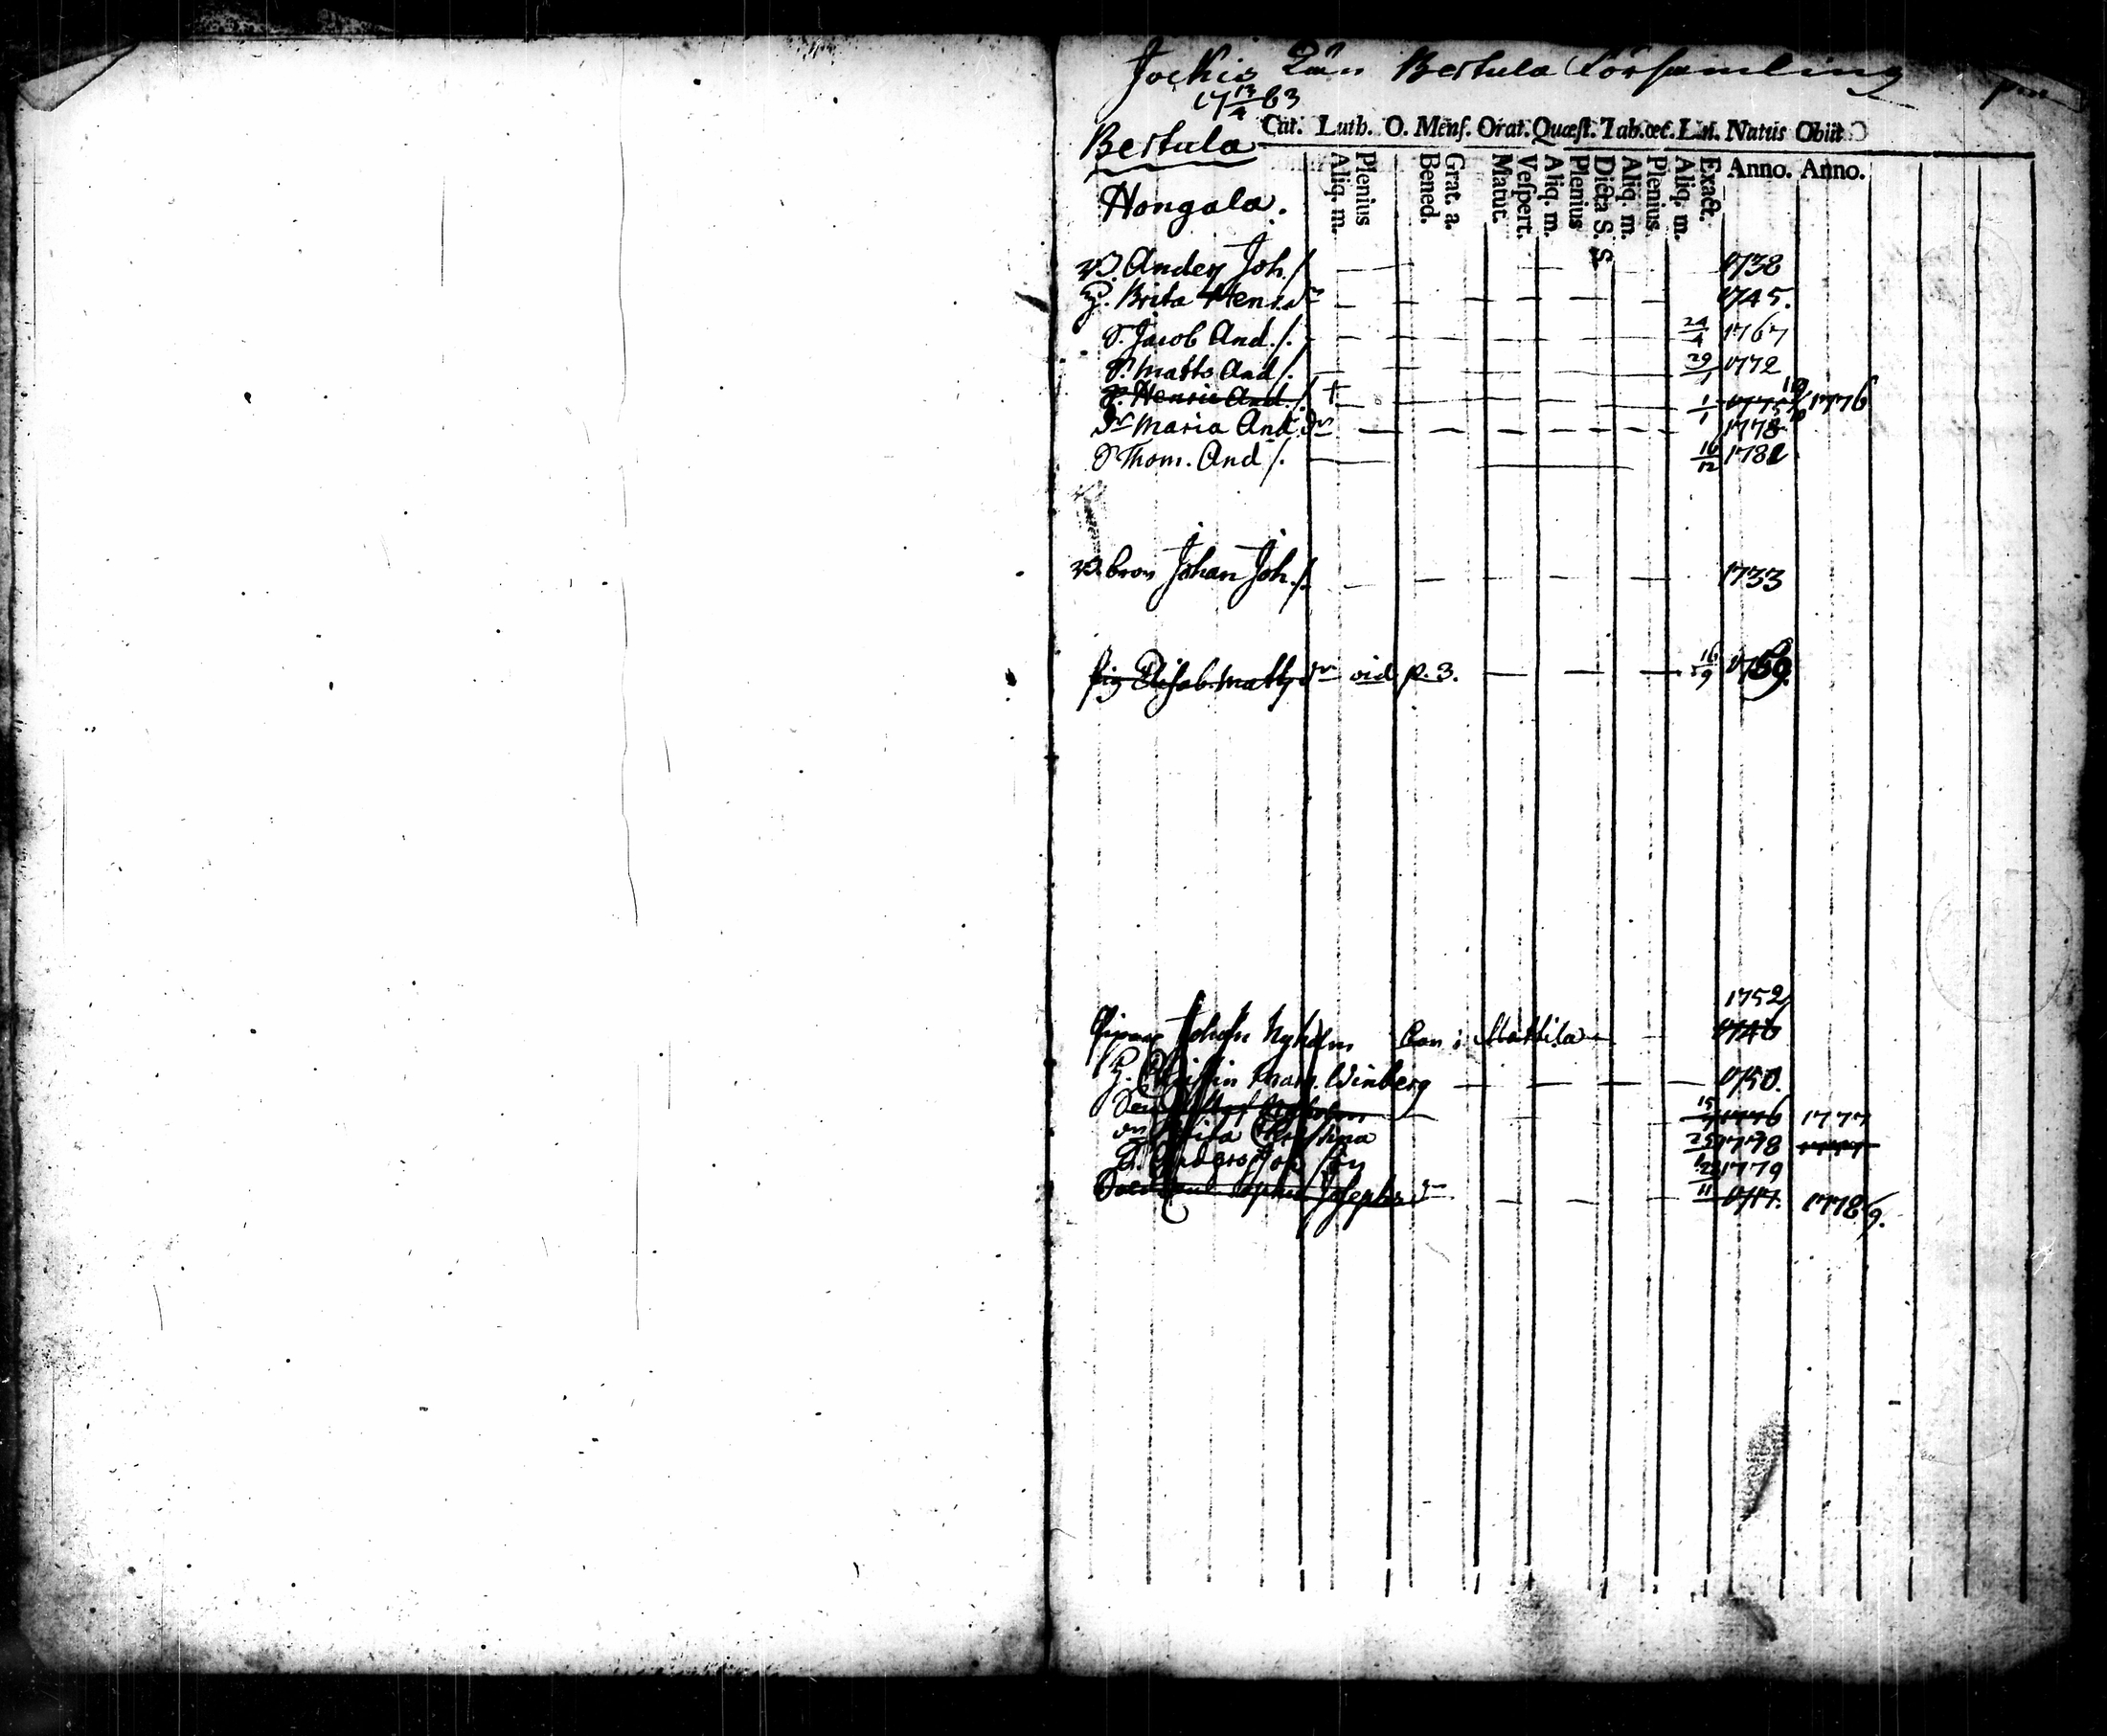 Jockis Län Bertula Församling
17 13/4 83
Cat. Luth. O. Mens. Orat. Quæst. Tab. œc. Natus Obiit
Bertula
Aliq. m. Plenius Bened. Grat. a. Matut. Vespert. Aliq. m. Plenius Dicta S. S. Aliq. m. Plenius Aliq. m. Exact. Anno. Anno.
Hongola.
Anders Joh. 1738
H. Brita Henr. dr 1745.
S. Jacob And. 24/4 1767
S. Matts And 29/1 1772
S. Henric And. † 1/1 1775 1776
Dr Maria And. dr 1778
S Thom. And 16/12 1781
Bror Johan Joh. 1733
Pig Elisab. Matts dr vid. p. 3. 16/9 1759.
1752
Johan Nyholm 1746
H. Mar. Winberg 1750.
15 1776 1777
Brita Christina 25 1778
S. Anders Joh 1779
Josephs dr 11 1717. 1778/9.